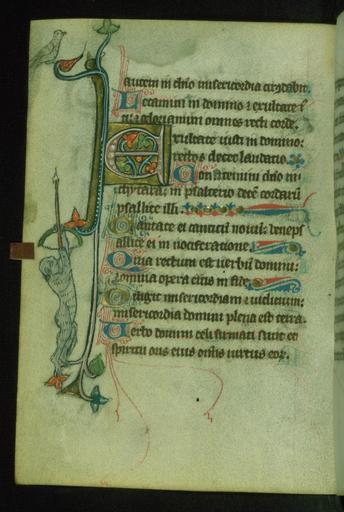 autem in dño misericordia circūdabit.
Letamini in domino ⁊ exultate i
ti: ⁊ gloriamini omnes recti corde.
Exultate iusti in domino:
rectos decet laudatio.
Confitemini dño in
cythara: in psalterio decē cordarū
psallite illi.
Cantate ei canticū nouū: bene psł
allite ei in uociferatione.
Quia rectum est uerbū domini:
⁊ omnia opera eius in fide.
Diligit misericordiam ⁊ iudicium:
misericordia domini plena est terra.
Uerbo domini celi firmati sunt et
spiritu oris eius omīs uirtus eoꝝ.